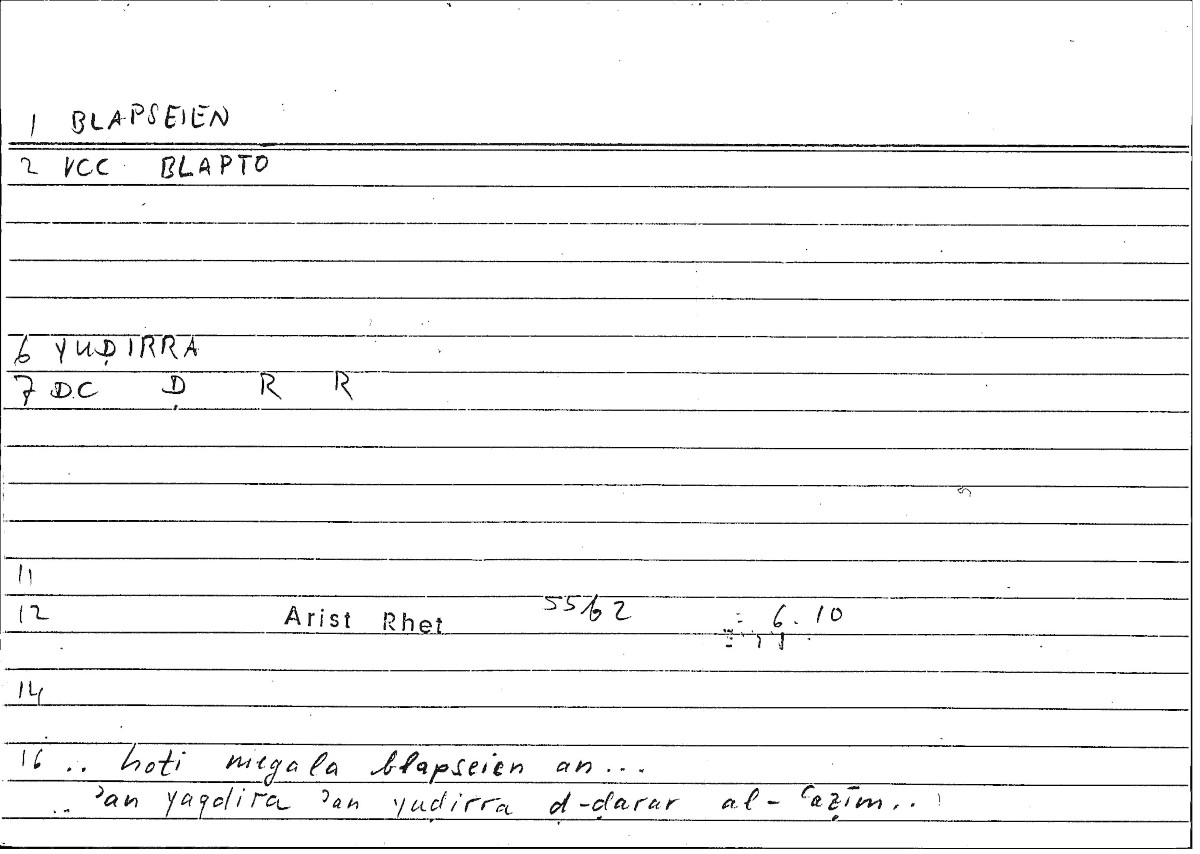 1 BLAPSEIEN
2 VCC BLAPTO
6 YUḌIRRA
7 DC Ḍ R R
11
12 Arist Rhet 55b2 6.10
14
16 .. hoti megala blapseien an...
.. ʾan yaqdira ʾan yuḍirra ḍ-ḍarar al-ʿaẓīm..